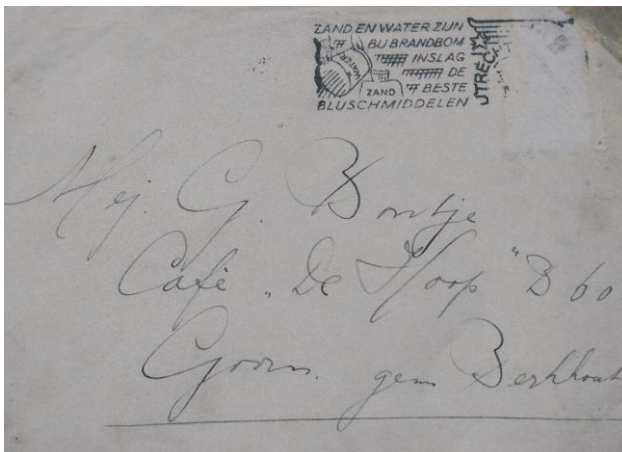 ZAND EN WATER ZIJN
BIJ BRANDBOM
INSLAG
WATER
DE
ZAND
BESTE
BLUSCHMIDDELEN
UTRECHT
Mej. G. Bontje
Café „De Hoop" B 60
Goorn. gem Berkhout